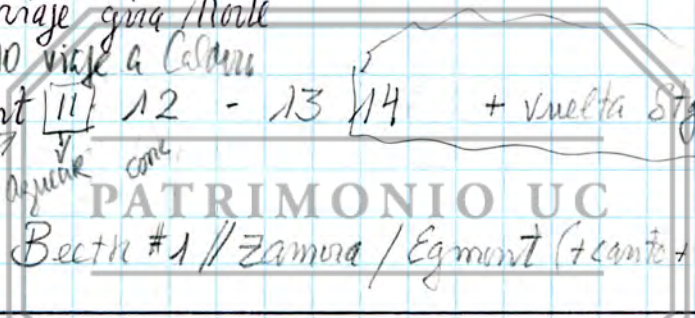 viaje gira / Norte
viaje a Caldera
11 12 - 13 14 + vuelta Stg
conc.
PATRIMONIO UC
Beeth #1 // Zamora / Egmont (+canto +